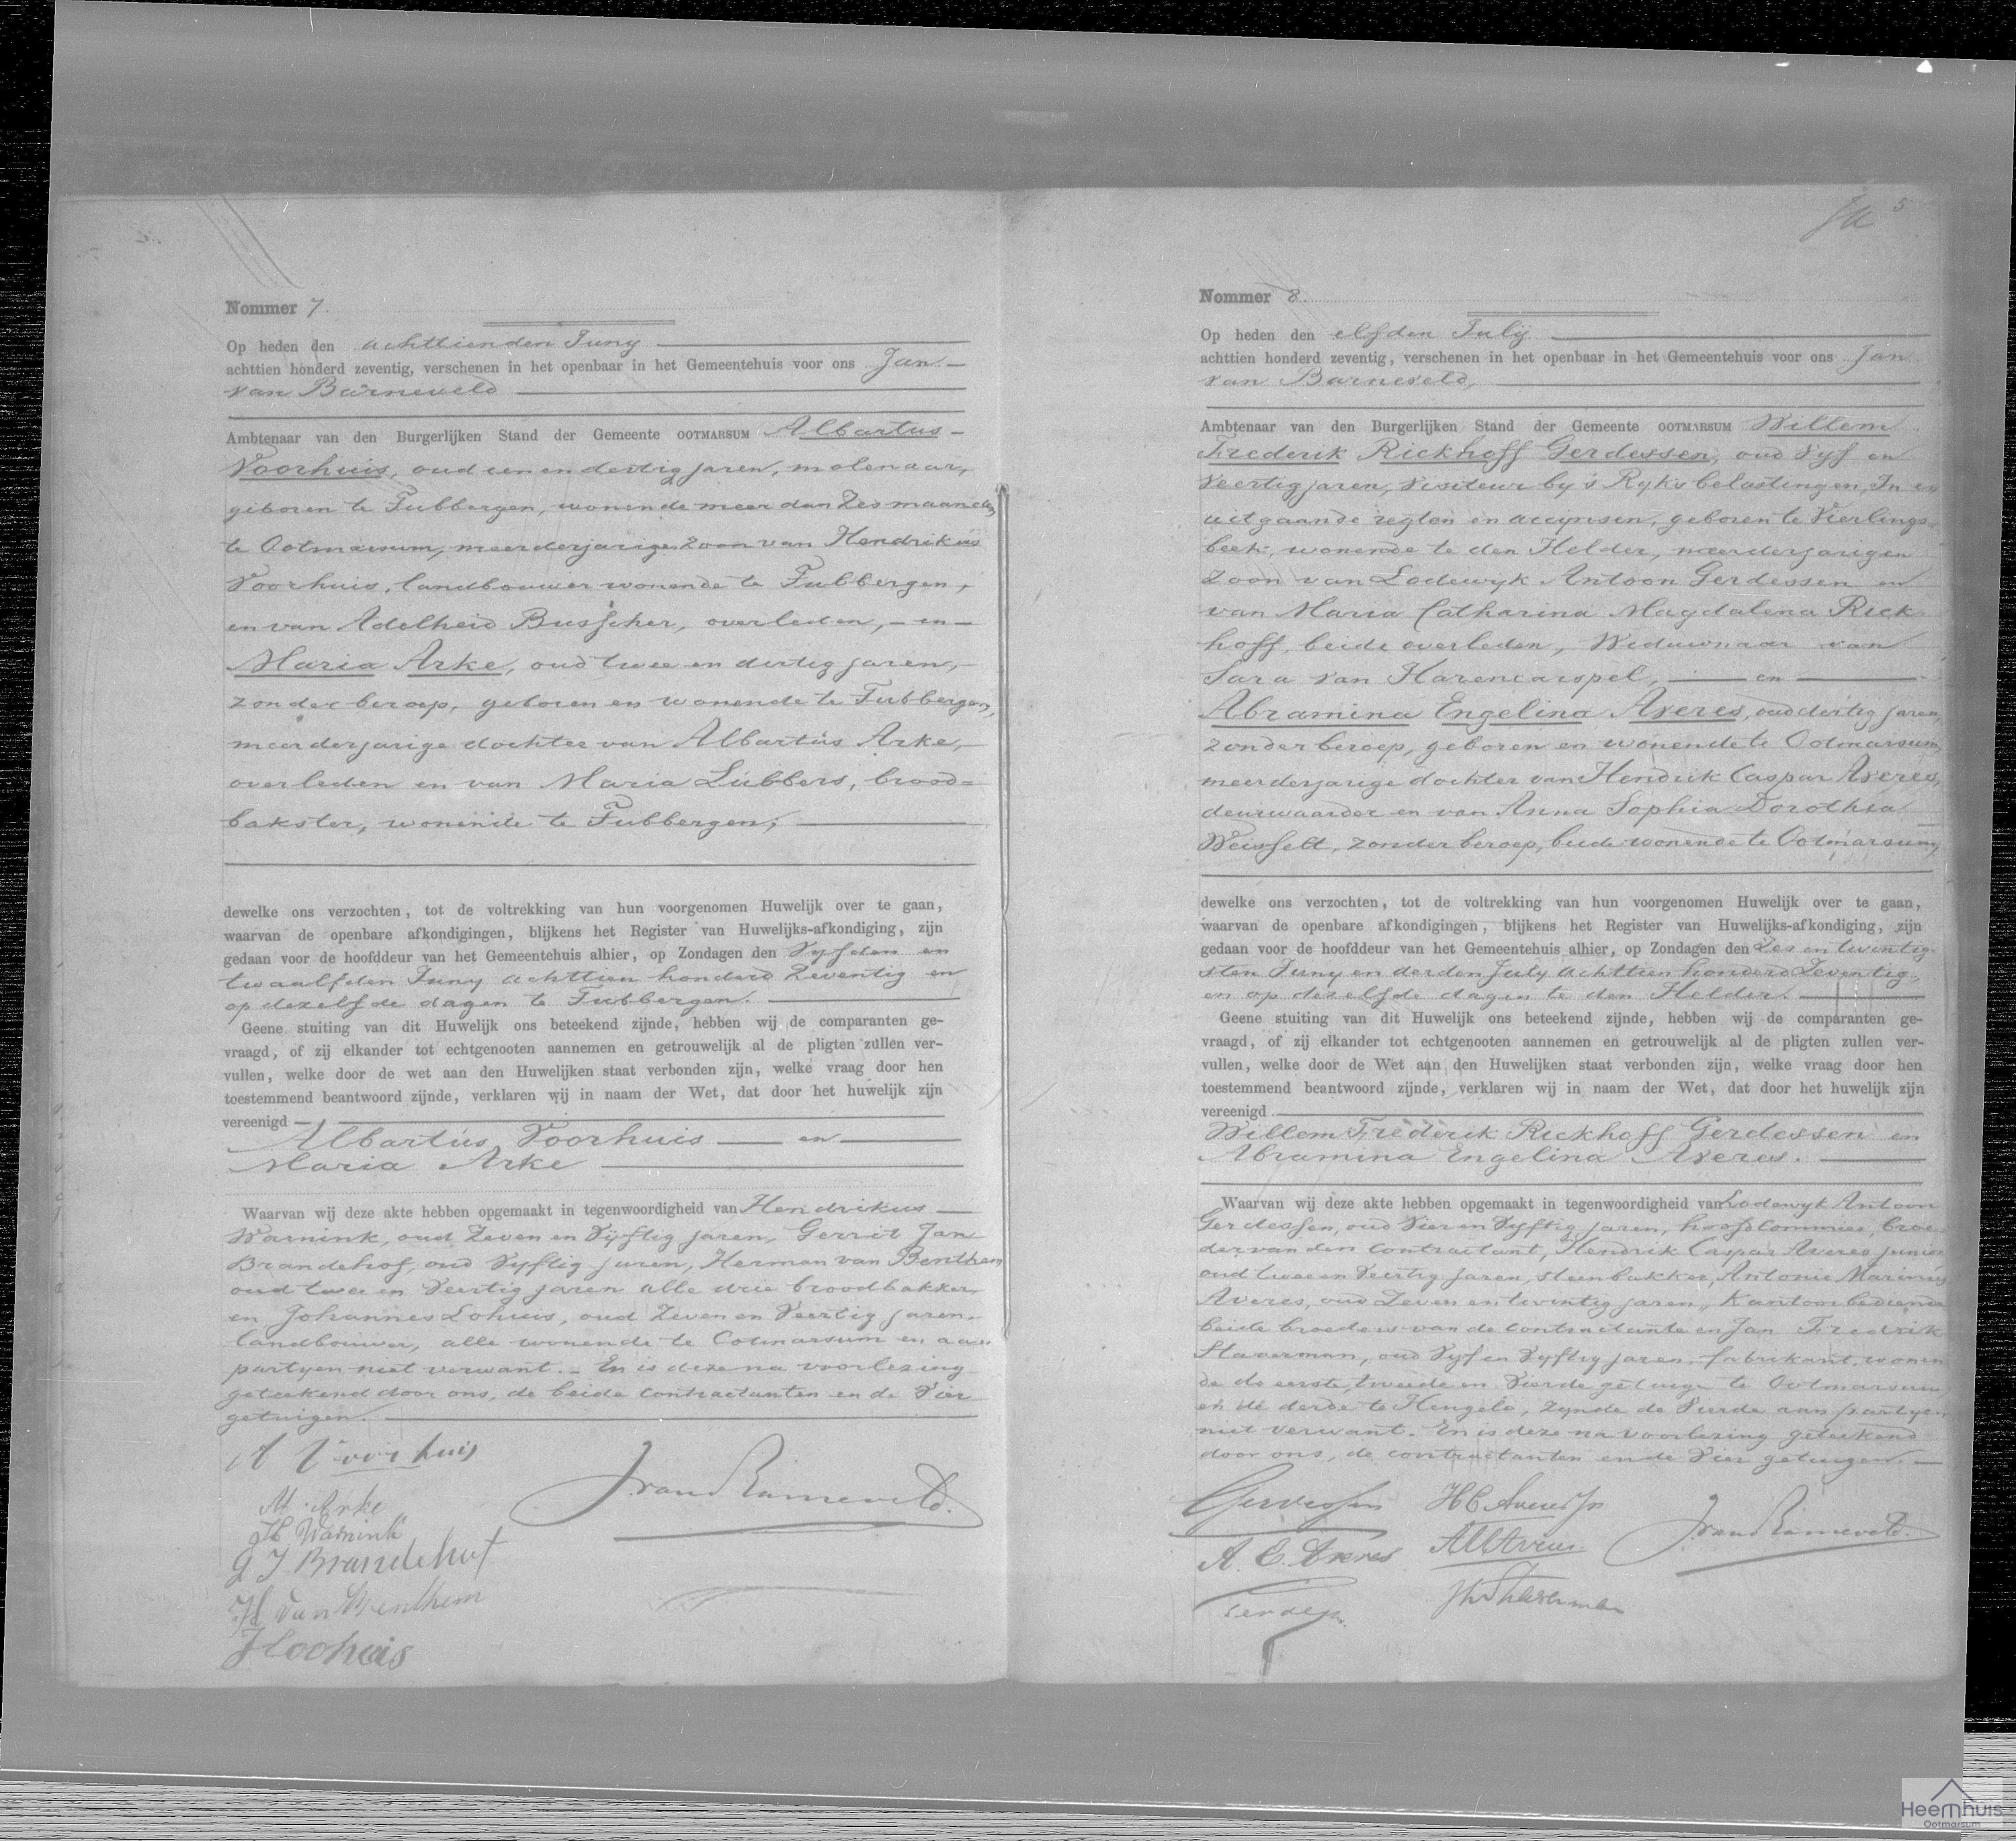 Nommer 7.
Op heden den achttienden Juny
achttien honderd zeventig, verschenen in het openbaar in het Gemeentehuis voor ons Jan
van Barneveld
Ambtenaar van den Burgerlijken Stand der Gemeente OOTMARSUM Albartus
Voorhuis, oud een en dertig jaren, molenaar,
geboren te Tubbergen, wonende meer dan Zes maanden
te Ootmarsum, meerderjarige Zoon van Hendrikus
Voorhuis, landbouwer wonende te Tubbergen,
en van Adelheid Busscher, overleden, - en -
Maria Arke, oud twee en dertig jaren,
zonder beroep, geboren en wonende te Tubbergen,
meerderjarige dochter van Albartus Arke,
overleden en van Maria Lubbers, brood=
bakster, wonende te Tubbergen;
dewelke ons verzochten, tot de voltrekking van hun voorgenomen Huwelijk over te gaan,
waarvan de openbare afkondigingen, blijkens het Register van Huwelijks-afkondiging, zijn
gedaan voor de hoofddeur van het Gemeentehuis alhier, op Zondagen den Vyfden en
twaalfden Juny achttien honderd Zeventig en
op dezelfde dagen te Tubbergen.
Geene stuiting van dit Huwelijk ons beteekend zijnde, hebben wij de comparanten ge-
vraagd, of zij elkander tot echtgenooten aannemen en getrouwelijk al de pligten zullen ver-
vullen, welke door de wet aan den Huwelijken staat verbonden zijn, welke vraag door hen
toestemmend beantwoord zijnde, verklaren wij in naam der Wet, dat door het huwelijk zijn
vereenigd
Albartus Voorhuis en
Maria Arke
Waarvan wij deze akte hebben opgemaakt in tegenwoordigheid van Hendrikus
Warnink, oud Zeven en Vyftig jaren, Gerrit Jan
Brandehof, oud Vyftig jaren, Herman van Benthem
oud twee en Veertig jaren alle drie broodbakker,
en Johannes Lohuis, oud Zeven en Veertig jaren
landbouwer, alle wonende te Ootmarsum en aan
partyen niet verwant. - En is deze na voorlezing
geteekend door ons, de beide contractanten en de Vier
getuigen.
A Voorhuis
M. Arke
H Warnink
G J Brandehof
H van Benthem
J Loohuis
J van Barneveld.
5
Nommer 8.
Op heden den elfden July
achttien honderd zeventig, verschenen in het openbaar in het Gemeentehuis voor ons Jan
van Barneveld,
Ambtenaar van den Burgerlijken Stand der Gemeente OOTMARSUM Willem
Frederik Rickhoff Gerdessen, oud Vyf en
Veertig jaren, Visiteur by 's Ryks belastingen, In en
uitgaande regten en accijnsen, geboren te Vierlings=
beek, wonende te den Helder, meerderjarigen
Zoon van Lodewyk Antoon Gerdessen en
van Maria Catharina Magdalena Rick
hoff, beide overleden, Weduwnaar van
Sara van Harencarspel, en
Abramina Engelina Averes, oud dertig jaren,
zonder beroep, geboren en wonende te Ootmarsum,
meerderjarige dochter van Hendrik Caspar Averes,
deurwaarder en van Anna Sophia Dorothea
Weisfelt, zonder beroep, beide wonende te Ootmarsum,
dewelke ons verzochten, tot de voltrekking van hun voorgenomen Huwelijk over te gaan,
waarvan de openbare afkondigingen, blijkens het Register van Huwelijks-afkondiging, zijn
gedaan voor de hoofddeur van het Gemeentehuis alhier, op Zondagen den Zes en twentig
sten Juny en derden July achttien honderd Zeventig,
en op dezelfde dagen te den Helder.
Geene stuiting van dit Huwelijk ons beteekend zijnde, hebben wij de comparanten ge-
vraagd, of zij elkander tot echtgenooten aannemen en getrouwelijk al de pligten zullen ver-
vullen, welke door de Wet aan den Huwelijken staat verbonden zijn, welke vraag door hen
toestemmend beantwoord zijnde, verklaren wij in naam der Wet, dat door het huwelijk zijn
vereenigd
Willem Frederik Rickhoff Gerdessen en
Abramina Engelina Averes.
Waarvan wij deze akte hebben opgemaakt in tegenwoordigheid van Lodewyk Antoon
Gerdessen, oud Vier en Vyftig jaren, hoofdcommies, broe
der van den contractant, Hendrik Caspar Averes junior
oud twee en Veertig jaren, steenbakker, Antonie Marinus
Averes, oud Zeven en twintig jaren, Kantoorbediende
beide broeders van de contractante en Jan Fredrik
Staverman, oud Vyf en Vyftig jaren, fabrikant, wonen
de de eerste, tweede en Vierde getuige te Ootmarsum,
en de derde te Hengelo, zynde de Vierde aan partyen
niet verwant. En is deze na voorlezing geteekend
door ons, de contractanten en de Vier getuigen.
Gerdessen
H C Averes Jr
A. E. Averes
A M Averes
Gerdessen
J F Staverman
J van Barneveld.
Heemhuis
Ootmarsum